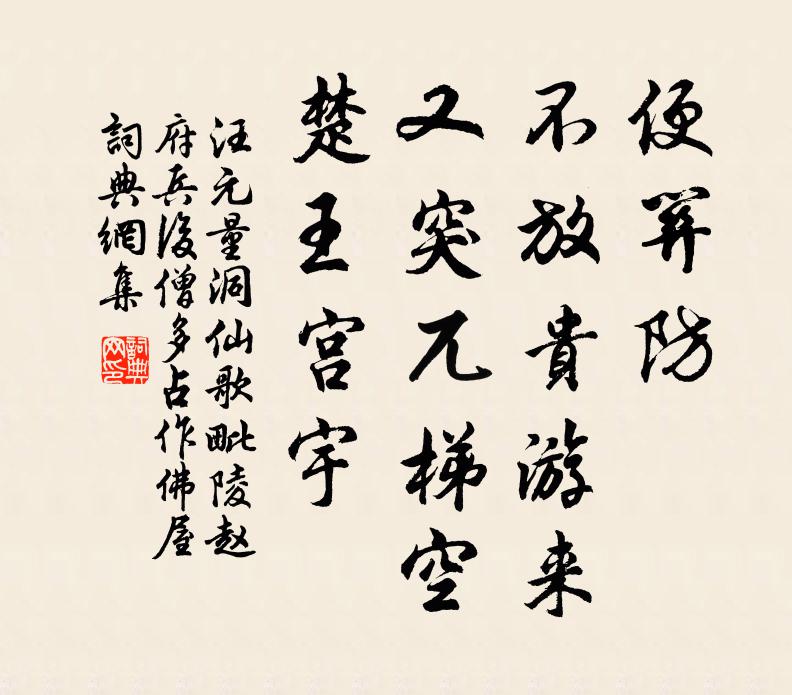 便关防
不放貴游来
又突兀梯空
楚王宫宇
汪元量洞仙歌毗陵赵
府兵後僧多占作佛屋
詞典網集
詞典网印